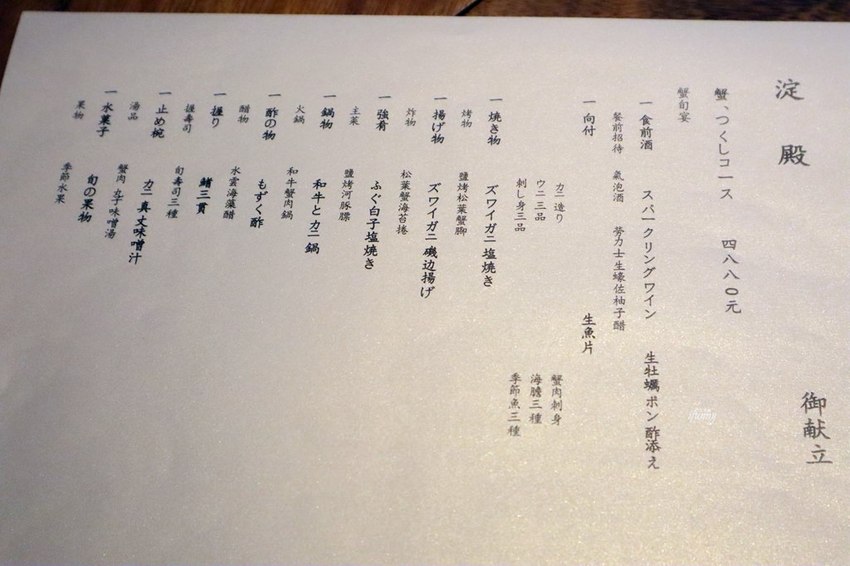 淀殿 御献立
蟹、つくしコース 四八八〇元
蟹旬宴
一 食前酒 スパークリングワイン 生牡蠣ポン酢添え
餐前招待 氣泡酒 勞力士生蠔佐柚子醋
一 向付 生魚片
カニ造り 蟹肉刺身
ウニ三品 海膽三種
刺し身三品 季節魚三種
一 焼き物 ズワイガニ塩焼き
烤物 鹽烤松葉蟹腳
一 揚げ物 ズワイガニ磯辺揚げ
炸物 松葉蟹海苔捲
一 強肴 ふぐ白子塩焼き
主菜 鹽烤河豚膘
一 鍋物 和牛とカニ鍋
火鍋 和牛蟹肉鍋
一 酢の物 もずく酢
醋物 水雲海藻醋
一 握り 鮨三貫
握壽司 旬壽司三種
一 止め椀 カニ真丈味噌汁
湯品 蟹肉丸子味噌湯
一 水菓子 旬の果物
果物 季節水果